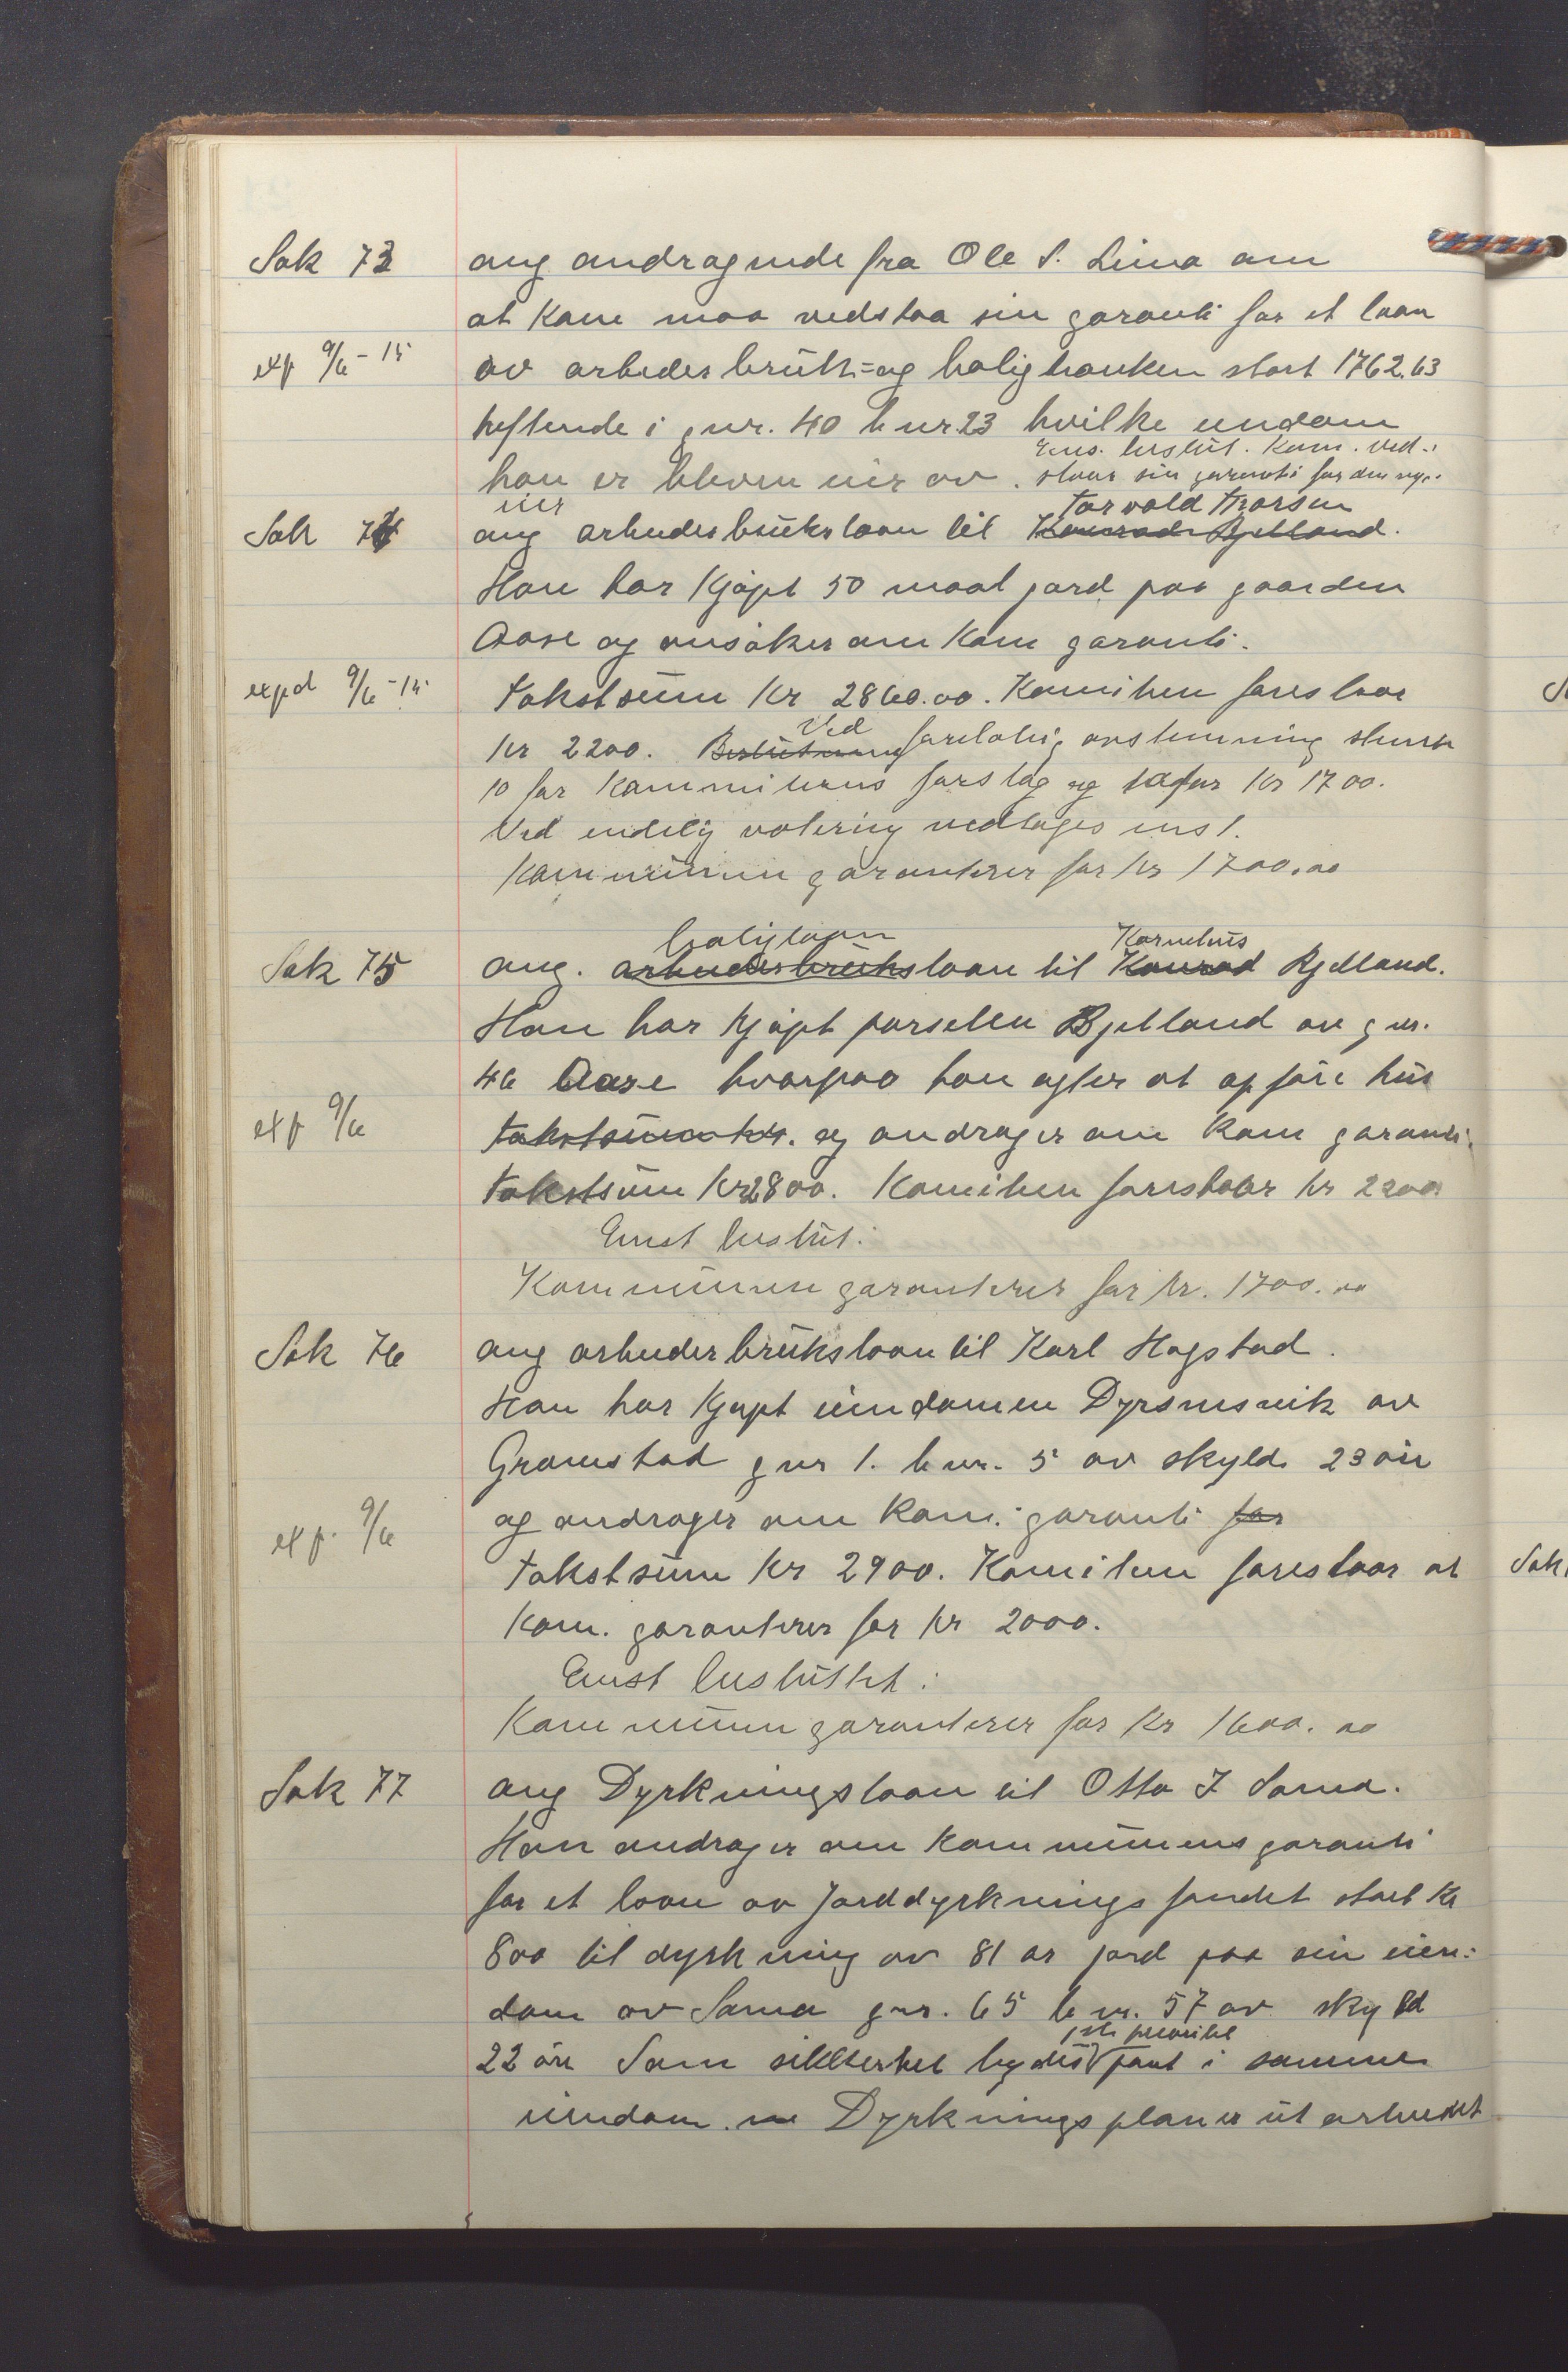 Sak 73 ang andragende fra Ole S. Lima om
at Kom maa vedstaa sin garanti for et laan
exp 9/6 - 15 av arbeiderbruk=og boligbanken stort 1762.63
heftende i gnr. 40 bnr 23 hvilke eiendom
Ens. beslut. Kom. ved-
han er bleven eier av. staar sin garanti for den nye
eier
Torvald Thorsen
Sak 74 ang arbeiderbruksloan til Konrad Bjelland.
Han har kjøpt 50 maal jord paa gaarden
Aase og ansøker om Kom garanti.
expd 9/6 - 15 Takstsum kr 2860.00. Komiteen foreslaar
Ved
kr 2200. Beslutning foreløbig avstemning stemte
10 for Kommiteens forslag og 10 for kr 1700.
Ved endelig votering vedtoges enst.
Kommunen garanterer for kr 1700,00
boliglaan Kornelius
Sak 75 ang. arbeiderbruksloan til Konrad Bjelland.
Han har kjøpt parsellen Bjelland av gnr.
46 Aase hvorpaa han agter at opføre hus
exp 9/6 takstsum kr. og andrager om Kom garanti.
takstsum kr 2800. Komiteen foreslaar kr 2200
Enst beslut:
Kommunen garanterer for kr. 1700.00
Sak 76 ang arbeiderbruksloan til Karl Hogstad.
Han har kjøpt eiendommen Dyrsnesvik av
Gramstad gnr 1. bnr. 5 av skyld 23 øre
exp. 9/6 og andrager om Kom. garanti for
takstsum kr 2900. Komiteen foreslaar at
kom. garanterer for kr 2000.
Enst besluttet:
Kommunen garanterer for kr 1600.00
Sak 77 ang Dyrkningsloan til Otto J Soma.
Han andrager om kommunens garanti
for et laan av Jorddyrkningsfondet stort kr
800 til dyrkning av 81 ar jord paa sin eien-
dom av Soma gnr. 65 bnr. 57 av skyld
1ste prioritet
22 øre Som sikkerhet bydes pant i samme
eiendom. Dyrkningsplan er utarbeidet